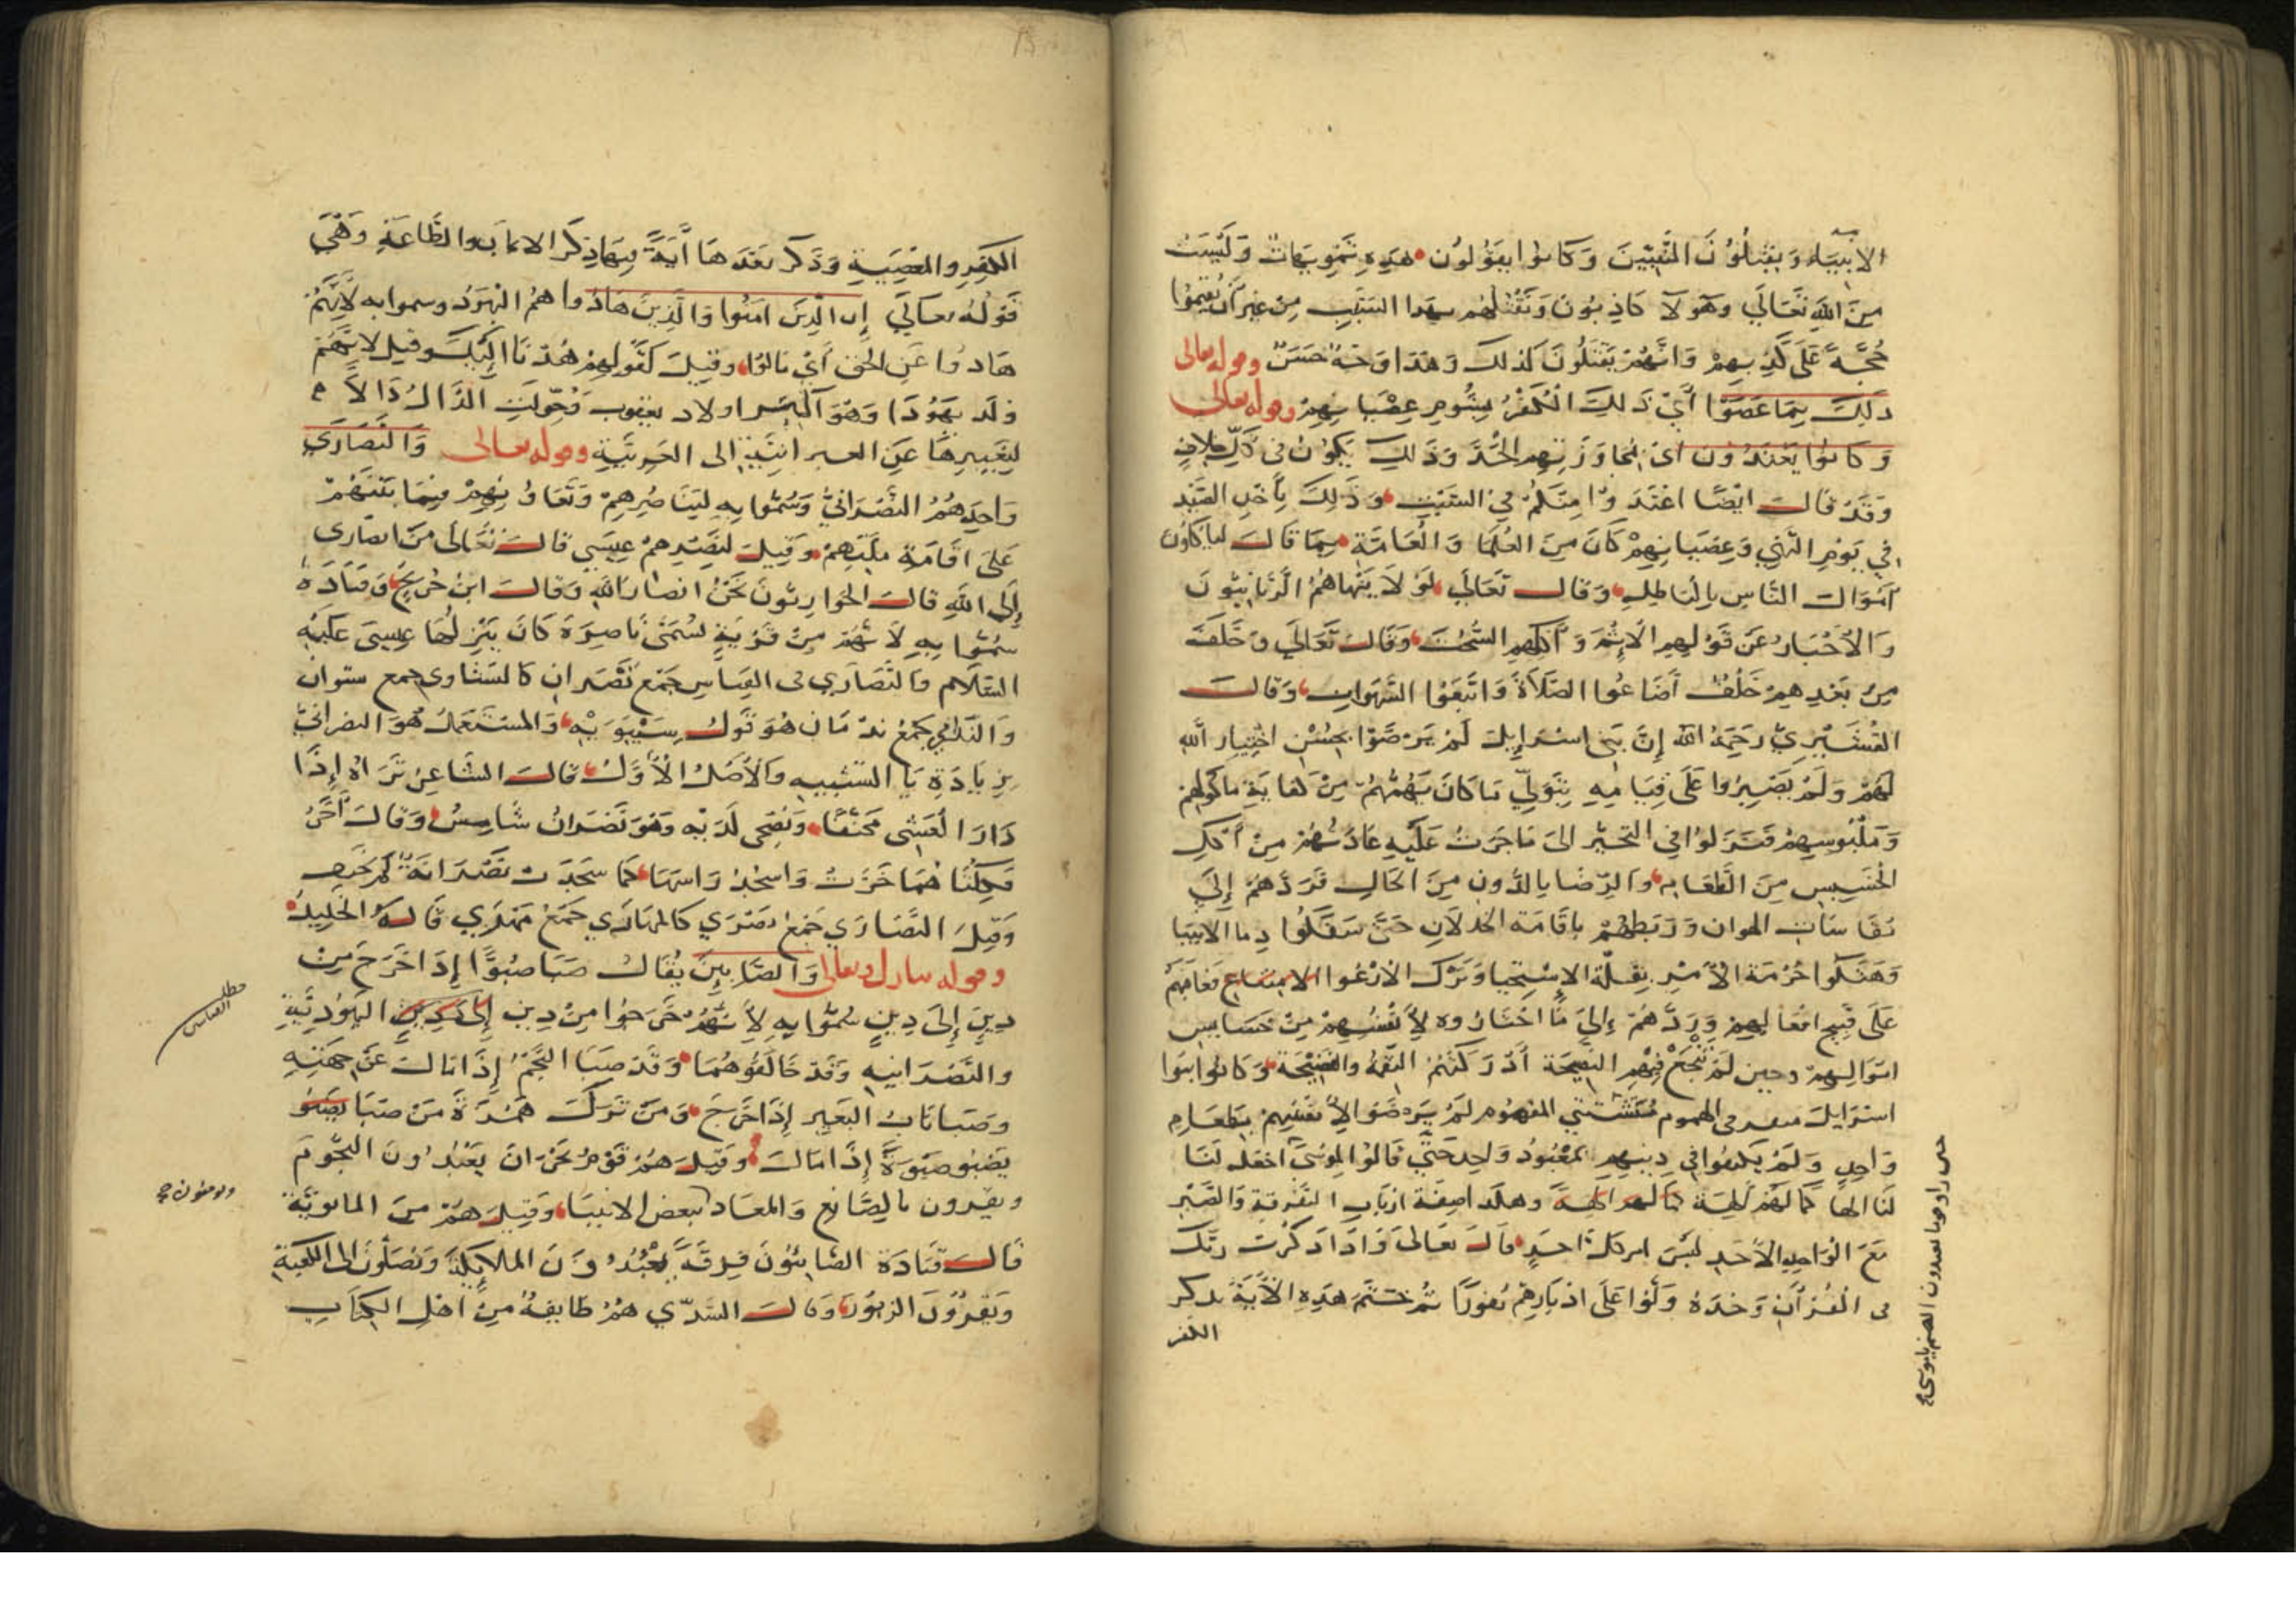 الانبياء ويقتلون المتنبيين وكانوا يقولون هذه تمويهات وليست
من الله تعالى وهولا كاذبون ونقتلهم بهذا السبب من غير ان يقيموا
حجة على كذبهم وانهم يقتلون لذلك وهذا وجه حسن وقوله تعالى
ذلك بما عصوا اي ذلك الكفر بشوم عصيانهم وقوله تعالى
وكانوا يعتدون اي بمجاوزتهم الحد وذلك يكون في كل خلاف
وقد قال ايضا اعتدوا منكم في السبت وذلك باخذ الصيد
في يوم النهي وعصيانهم كان من العلما والعامة مما قال لياكلون
اموال الناس بالباطل وقال تعالى لولا ينهاهم الربانيون
والاحبار عن قولهم الاثم واكلهم السحت وقال تعالى وخلف
من بعدهم خلف اضاعوا الصلاة واتبعوا الشهوات وقال
القشيري رحمه الله إن بني اسرايل لم يرضوا بحسن اختيار الله
لهم ولم يصبروا على قيامه بتولي ما كان يهمهم من كفاية ماكولهم
وملبوسهم فنزلوا في التحير الى ما جرت عليه عادتهم من أكل
الخسيس من الطعام والرضا بالدون من الحال فردهم إلى
مقاسات الهوان وربطهم باقامة الخذلان حتى سفكوا دما الانبيا
وهتكوا حرمة الأمر بقلة الاستحيا وترك الارعوا الامتناع فعاقبهم
على قبيح افعالهم وردهم إلى ما اختاروه لانفسهم من خسايس
احوالهم وحين لم تنجع فيهم النصيحة أدركتهم النقمة والفضيحة وكانوا بنوا
اسرايل متفرقى الهموم مشتتي المفهوم لم يرضوا لانفسهم بطعام
واحد ولم يكتفوا في دينهم بمعبود واحد حتى قالوا لموسى اجعل لنا
لنا الها كما لهم الهة كما لهم الهة وهكذا صفة ارباب التفرقة والصبر
مع الواحد الأحد ليس امر كل احد قال تعالى واذا ذكرت ربك
فى القرآن وحده ولوا على ادبارهم نفورا ثم ختم هذه الآية بذكر
الكفر
حتى راوا قوما يعبدون الصنم يا موسى
الكفر والمعصية وذكر بعدها آية فيها ذكر الايمان والطاعة وهي
قوله تعالى إن الذين امنوا والذين هادوا هم اليهود وسموا به لانهم
هادوا عن الحق أي مالوا وقيل كقولهم هدنا اليك وقيل لانهم
ولد يهودا وهو اكبر اولاد يعقوب فحولت الذال دالا
لتغييرها عن العبرانية الى العربية وقوله تعالى والنصارى
واحدهم النصراني وسموا به لتناصرهم وتعاونهم فيما بينهم
على اقامة ملتهم وقيل لنصرهم عيسى قال تعالى من انصارى
إلى الله قال الحواريون نحن انصار الله وقال ابن جريج وقتادة
سموا به لانهم من قرية تسمى ناصرة كان ينزلها عيسى عليه
السلام والنصارى فى القياس جمع نصران كالنشاوى جمع نشوان
والندامى جمع ندمان هو قول سيبويه والمستعمل هو النصراني
بزيادة يا التشبيه والأصل الأول قال الشاعر تراه إذا
دار العشى محنفا ويضحى لديه وهو نصران شامس وقال آخر
فكلتاهما خرت واسجد راسها كما سجدت نصرانة لم تحنف
وقيل النصارى جمع نصرى كالمهارى جمع مهرى قاله الخليل
وقوله تبارك وتعالى والصابين يقال صبا صبوا إذا خرج من
دين إلى دين سموا به لانهم خرجوا من دين إلى دين اليهودية
والنصرانيه وقد خالفوهما وقد صبا النجم إذا مال عن جهته
وصبا ناب البعير إذا خرج ومن ترك همزة من صبا يصبو
يصبو صبوة إذا مال وقيل هم قوم بحران يعبدون النجوم
ويقرون بالصانع والمعاد ببعض الانبيا وقيل هم من المانوية
قال قتادة الصابئون فرقة يعبدون الملايكة ويصلون الى الكعبة
ويقرؤن الزبور وقال السدي هم طايفة من اهل الكتاب
مطلب الصابين
ويومنون